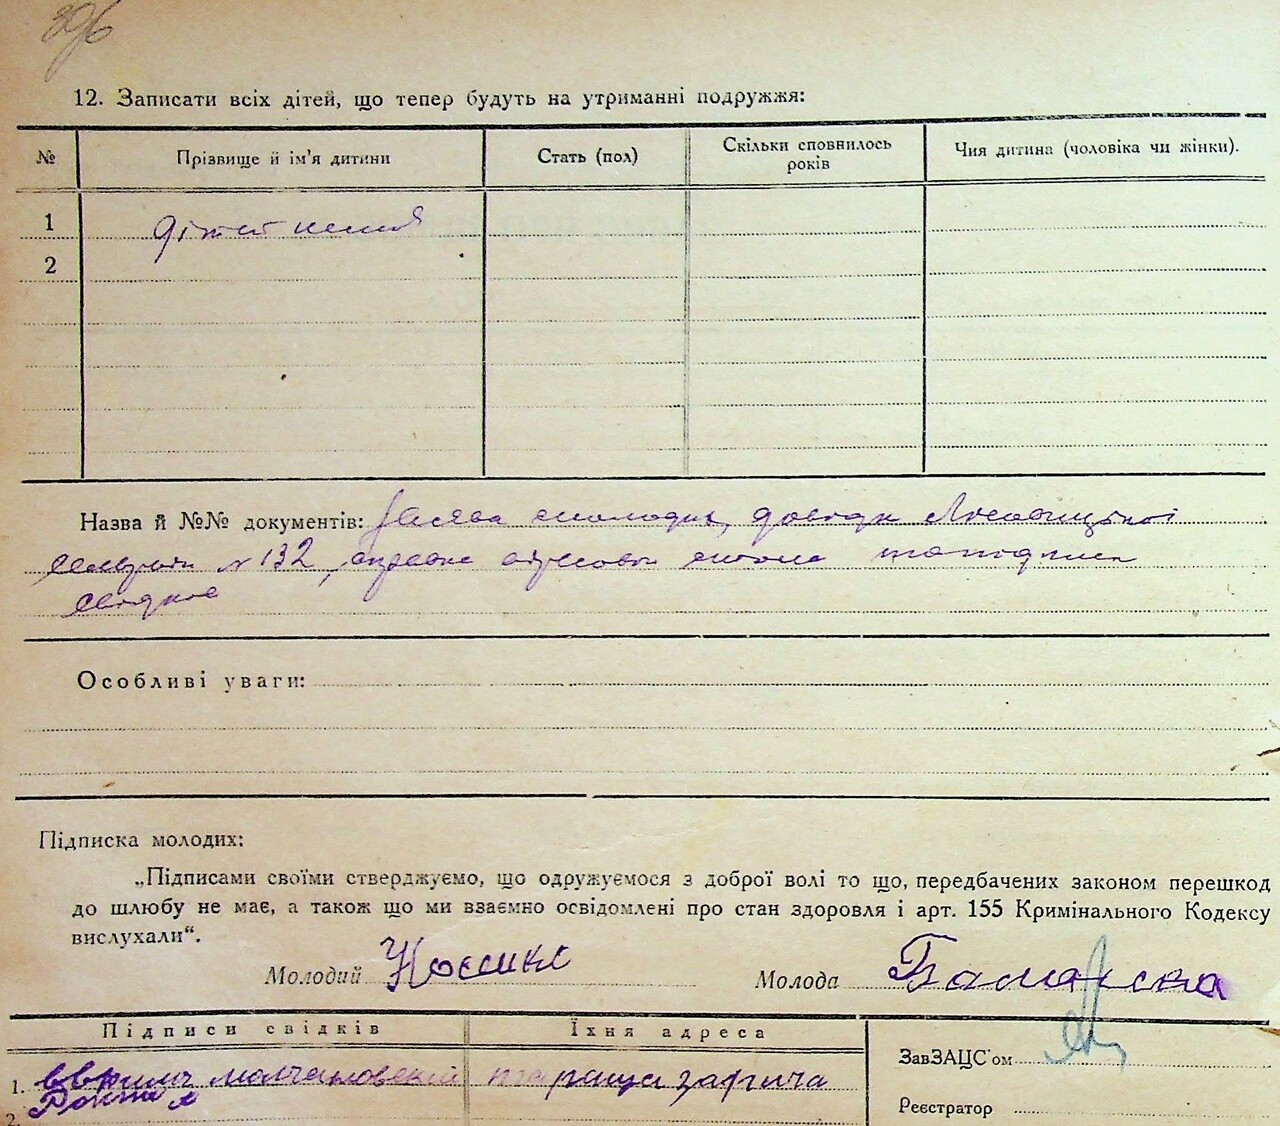 396
12. Записати всіх дітей, що тепер будуть на утриманні подружжя:
№ Прізвище й ім'я дитини Стать (пол) Скільки сповнилось років Чия дитина (чоловіка чи жінки).
1 дітей нема
2
Назва й №№ документів: заява молодих, довідк
№ 132, справка та підписи
свідків
Особливі уваги:
Підписка молодих:
„Підписами своїми стверджуємо, що одружуємося з доброї волі то що, передбачених законом перешкод
до шлюбу не має, а також що ми взаємно освідомлені про стан здоровля і арт. 155 Кримінального Кодексу
вислухали“.
Молодий Молода
Підписи свідків Їхня адреса
ЗавЗАЦС'ом
1. молчановский тараща
2.
Реєстратор